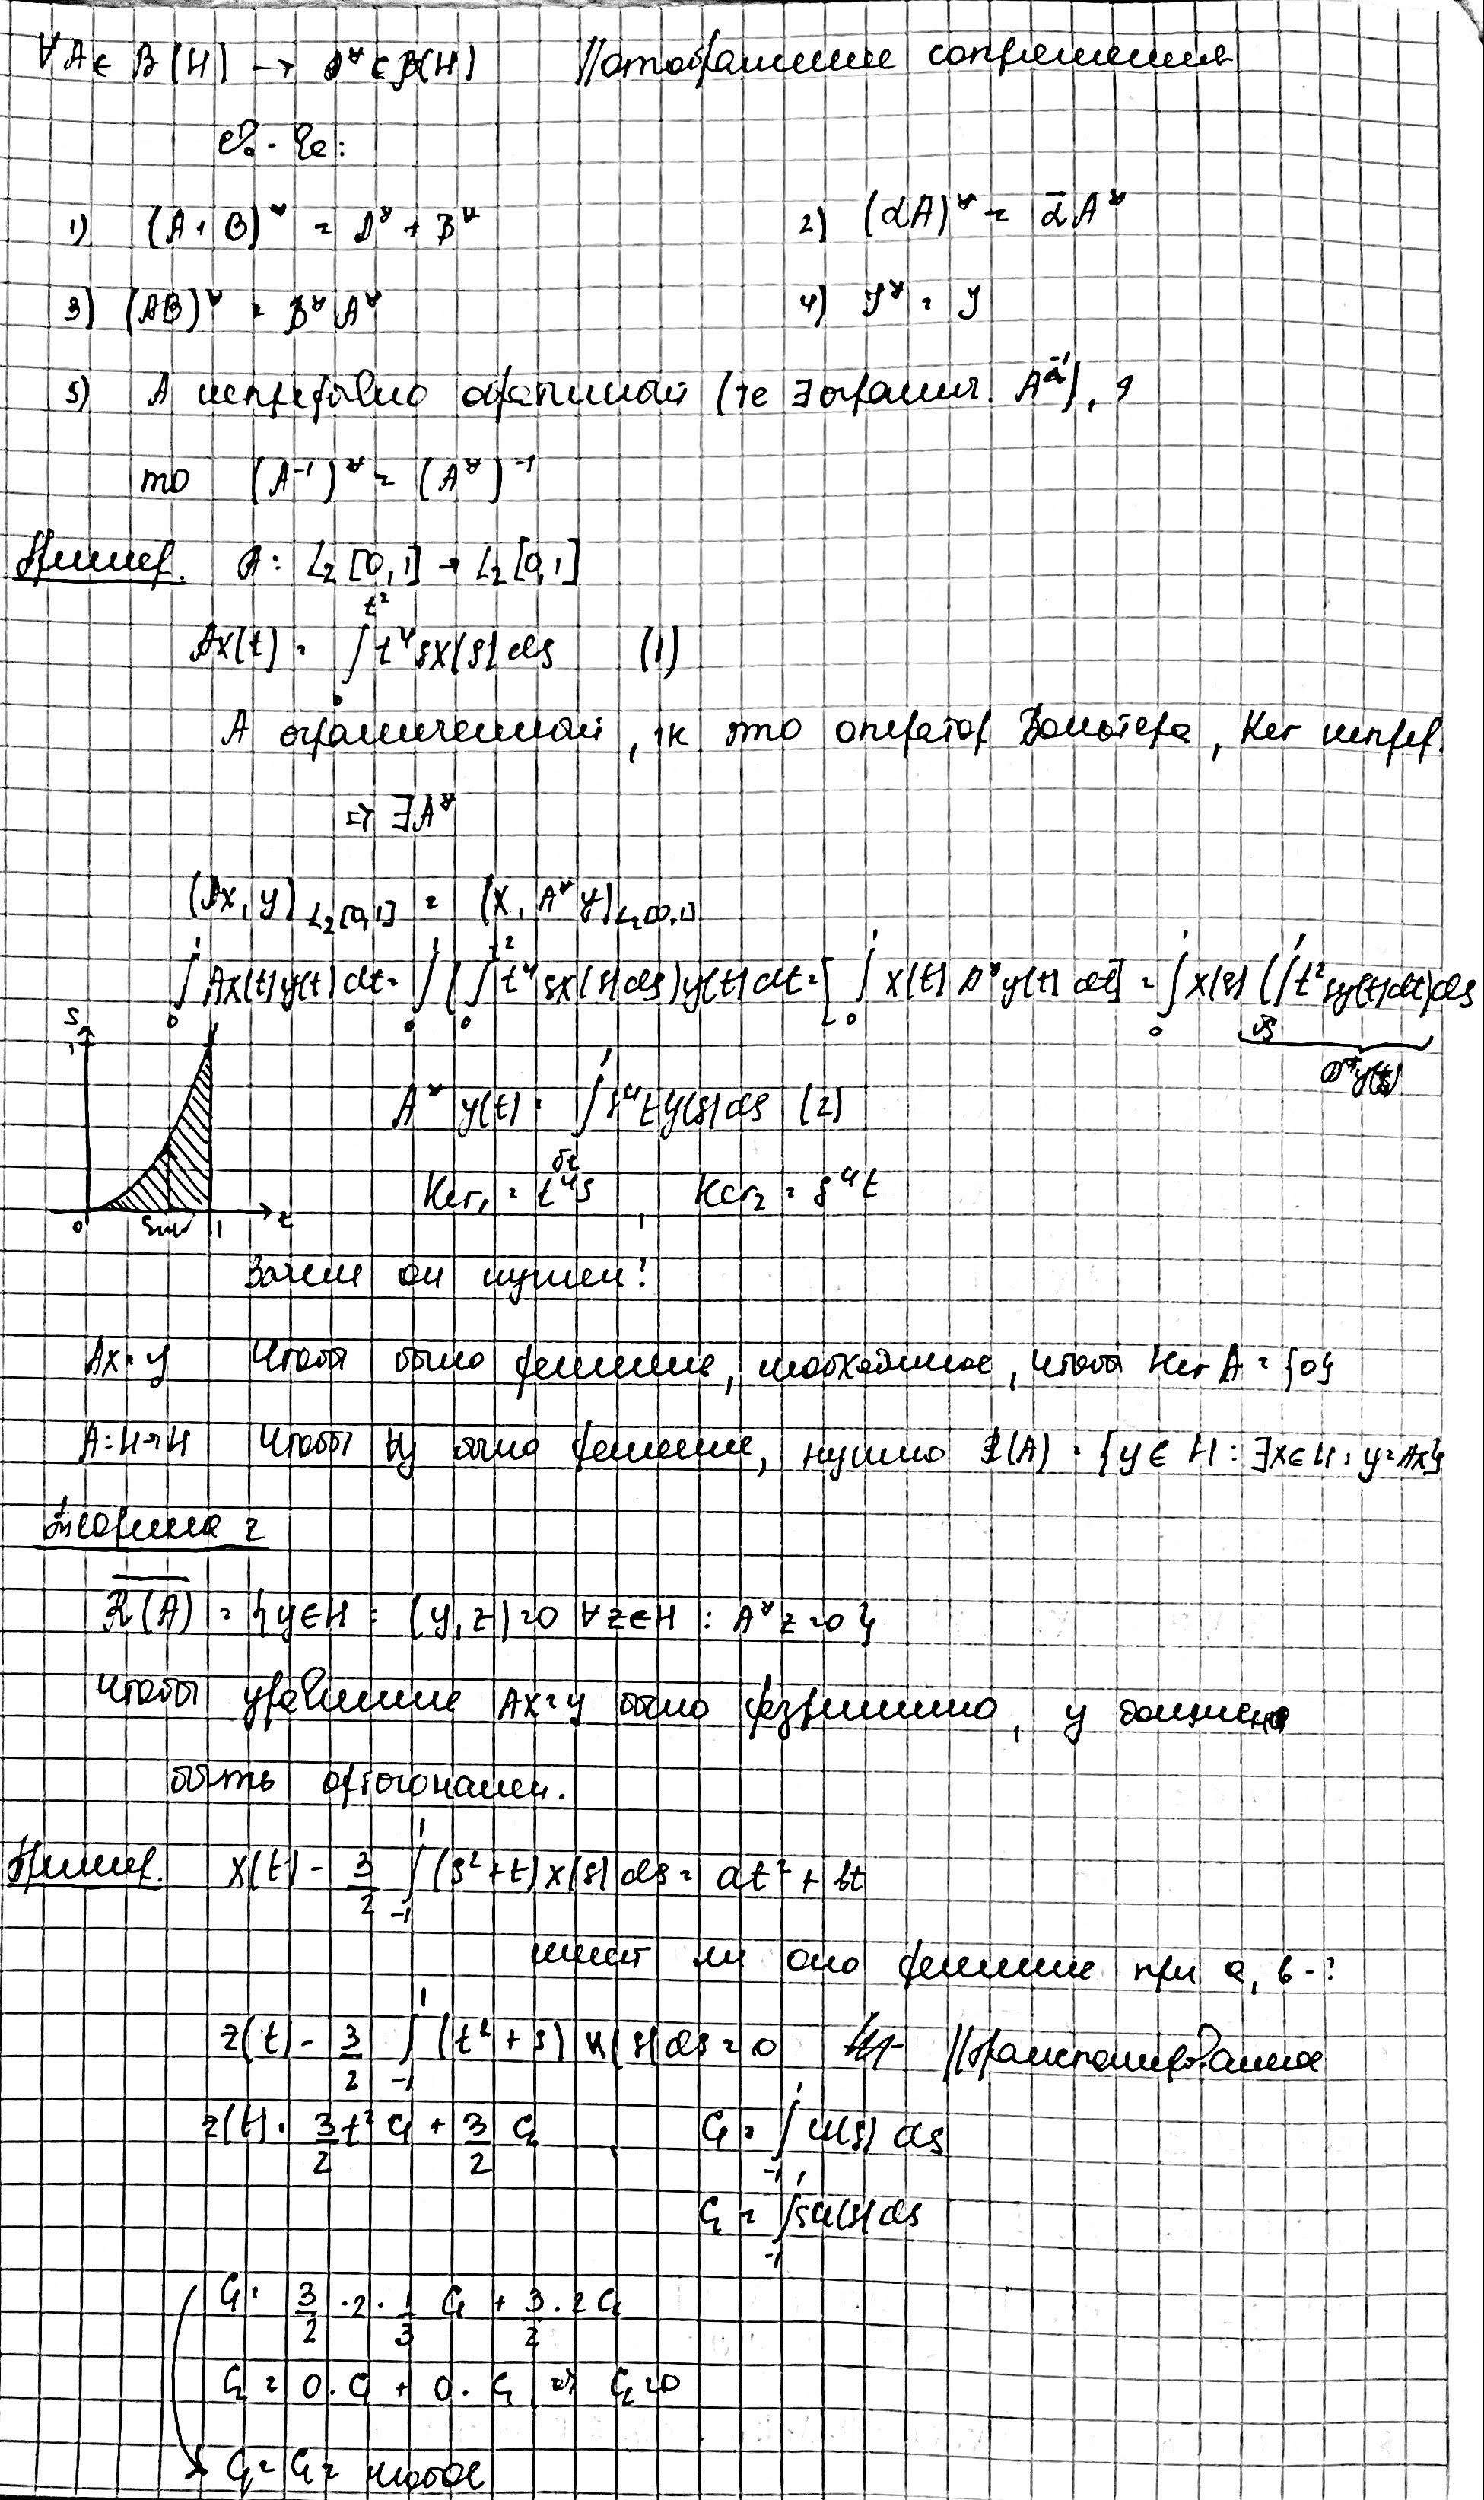 ∀A ∈ B(H) → A* ∈ B(H) // отображение сопряжения
Св-ва:
1) (A + B)* = A* + B* 2) (αA)* = ᾱA*
3) (AB)* = B*A* 4) I* = I
5) A непрерывно обратимый (те ∃ огранич. A⁻¹),
то (A⁻¹)* = (A*)⁻¹
Пример. A: L₂[0,1] → L₂[0,1]
Ax(t) = ∫₀^{t²} t⁴sx(s)ds (1)
A ограниченный, тк это оператор Вольтера, Ker непрер.
=> ∃A*
(Ax, y)_{L₂[0,1]} = (x, A*y)_{L₂[0,1]}
∫₀¹ Ax(t)y(t)dt = ∫₀¹ (∫₀^{t²} t⁴sx(s)ds)y(t)dt = [∫₀¹ x(t) A*y(t) dt] = ∫₀¹ x(s) (∫_{√s}¹ t²sy(t)dt)ds
A*y(s)
s
1
A*y(t) = ∫_{√t}¹ s⁴ty(s)ds (2)
Ker₁ = t⁴s, Ker₂ = s⁴t
0 1 t
Зачем он нужен?
Ax = y Чтобы было решение, необходимое, чтобы Ker A = {0}
A: H→H Чтобы ∀y было решение, нужно R(A) = {y ∈ H : ∃x ∈ H : y = Ax}
Теорема 2
R̅(̅A̅)̅ = {y ∈ H : (y, z) = 0 ∀z ∈ H : A*z = 0}
Чтобы уравнение Ax = y было разрешимо, y должено
быть ортогонален.
Пример. x(t) - 3/2 ∫₋₁¹ (s² + t) x(s) ds = at² + bt
имеет ли оно решение при a, b - ?
z(t) - 3/2 ∫₋₁¹ (t² + s) u(s)ds = 0 // транспонированное
z(t) = 3/2 t² C₁ + 3/2 C₂ C₁ = ∫₋₁¹ u(s) ds
C₂ = ∫₋₁¹ su(s)ds
C₁ = 3/2 · 2 · 1/3 C₁ + 3/2 · 2 C₂
C₂ = 0 · C₁ + 0 · C₂ => C₂ = 0
C₁ = C₁ = любое